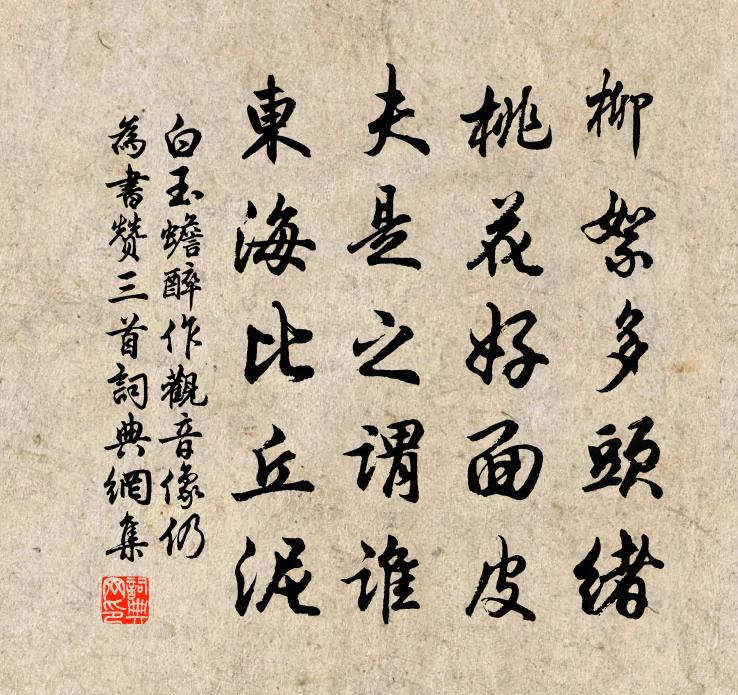 柳絮多頭緒
桃花好面皮
夫是之謂誰
東海比丘泥
白玉蟾醉作觀音像仍
為書赞三首詞典網集
詞典
网印